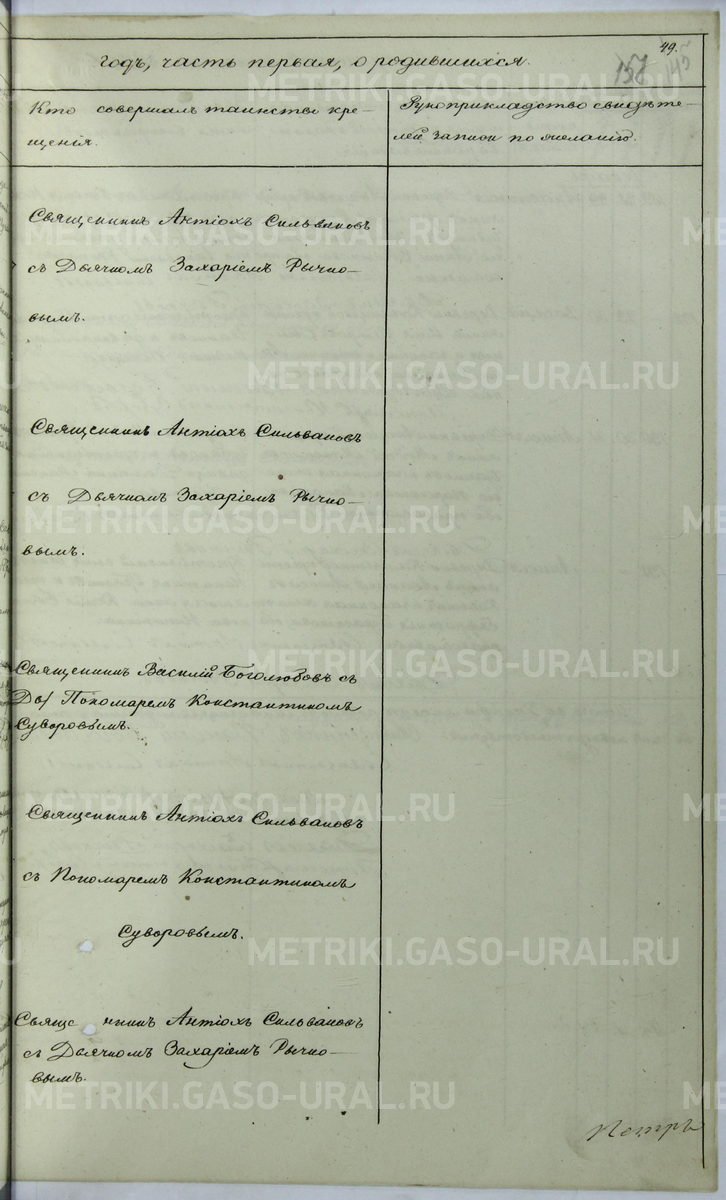 49.
годъ, часть первая, о родившихся.
157
145
Кто совершалъ таинство кре-
щенія.
Рукоприкладство свидѣте-
лей записи по желанію.
Священникъ Антіохъ Сильвановъ
съ Дьячкомъ Захаріемъ Рычко-
вымъ.
Священникъ Антіохъ Сильвановъ
съ Дьячкомъ Захаріемъ Рычко-
вымъ.
Священникъ Василій Боголюбовъ съ
Пономаремъ Константиномъ
Суворовымъ.
Священникъ Антіохъ Сильвановъ
съ Пономаремъ Константиномъ
Суворовымъ.
Священникъ Антіохъ Сильвановъ
съ Дьячкомъ Захаріемъ Рычко-
вымъ.
METRIKI.GASO-URAL.RU